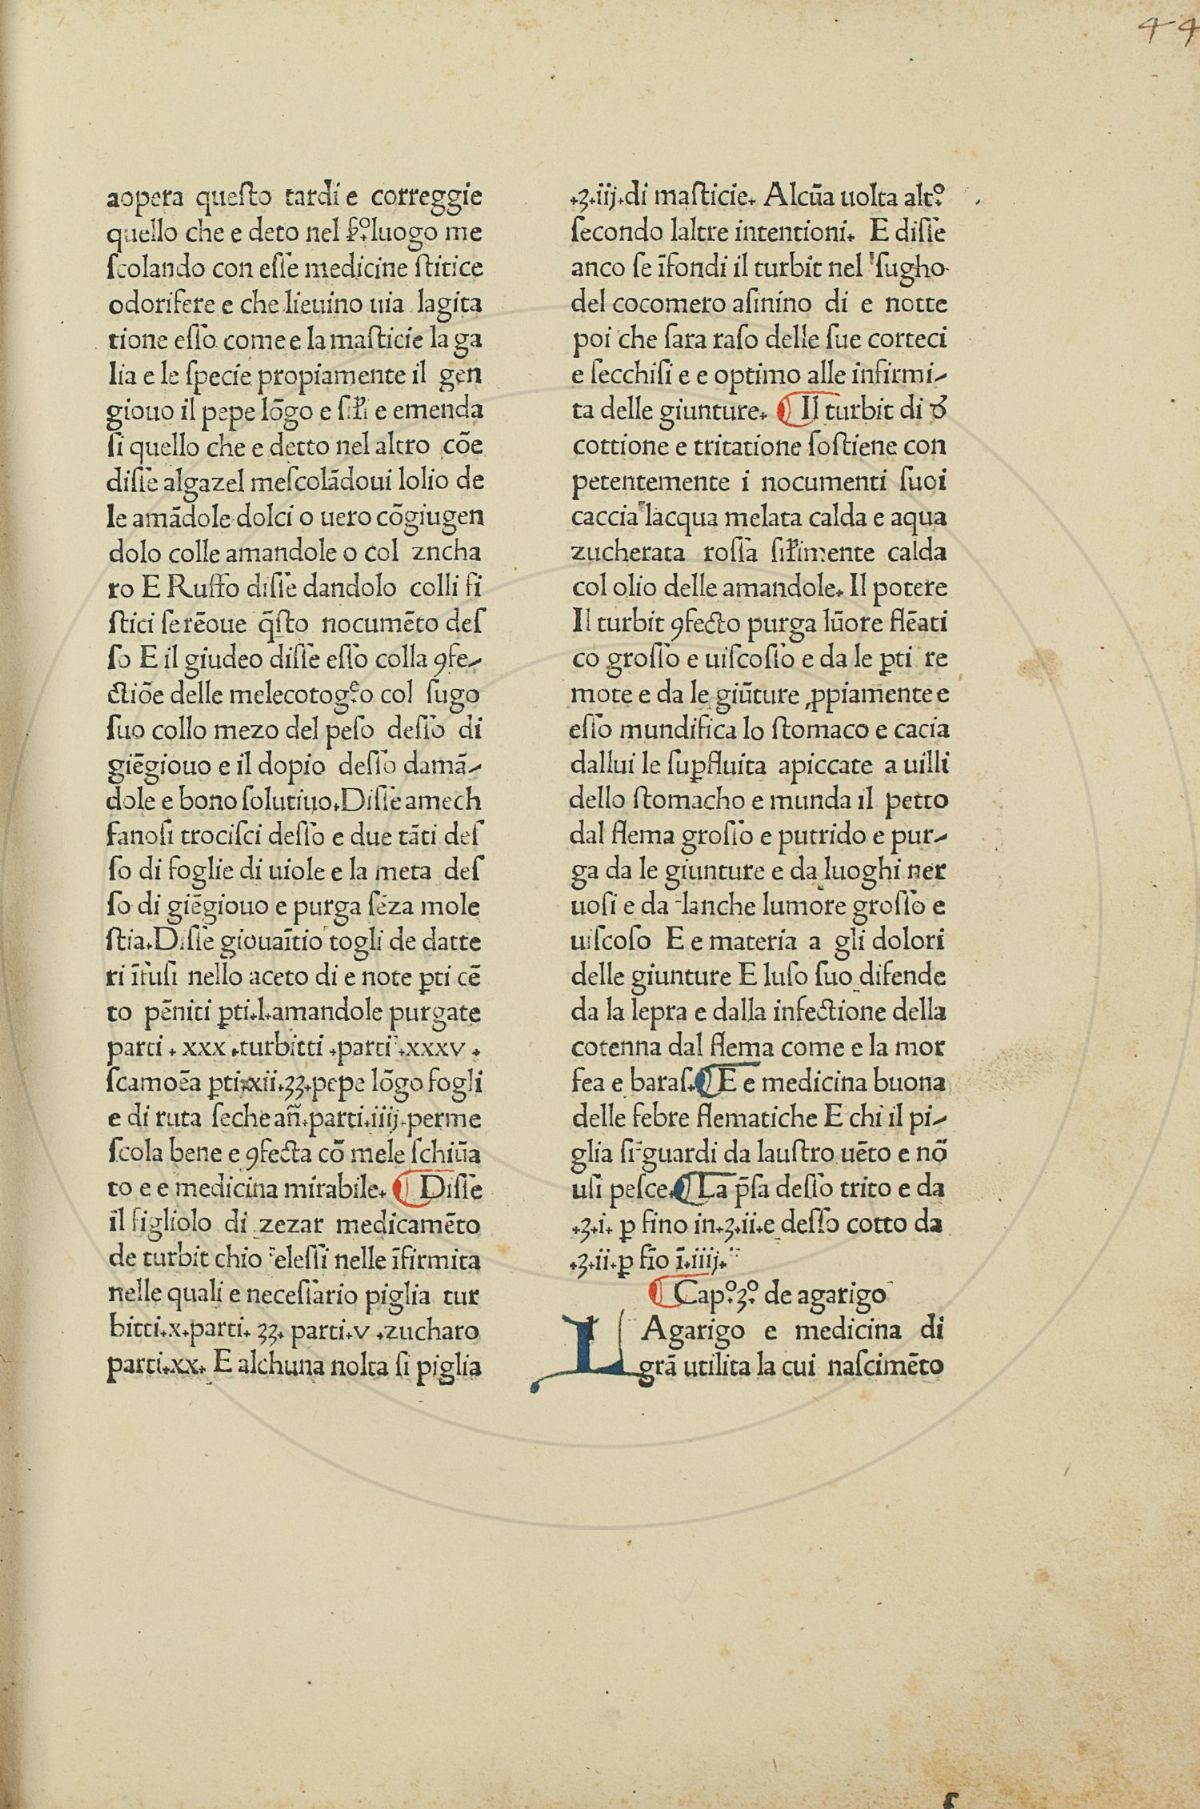 44
aopera questo tardi e correggie
quello che e deto nel pͦ. luogo me
ſcolando con eſſe medicine ſtitice
odorifere e che lieuino uia lagita
tione eſſo come e la maſticie la ga
lia e le ſpecie propiamente il gen
giouo il pepe lōgo e e emenda
ſi quello che e detto nel altro cōe
diſſe algazel meſcolādoui lolio de
le amādole dolci o uero cōgiugen
dolo colle amandole o col zncha
ro E Ruffo diſſe dandolo colli fi
ſtici ſe rēoue q̄ſto nocumēto deſ
ſo E il giudeo diſſe eſſo colla ꝯfe⸗
ctiōe delle melecotogͤ.o col ſugo
ſuo collo mezo del peſo deſſo di
giēgiouo e il dopio deſſo damā⸗
dole e bono ſolutiuo.Diſſe amech
fanoſi trociſci deſſo e due tāti deſ
ſo di foglie di uiole e la meta deſ
ſo di giēgiouo e purga ſēza mole
ſtia.Diſſe giouaītio togli de datte
ri īfuſi nello aceto di e note ꝑti cē
to pēniti ꝑti.l.amandole purgate
parti . xxx .turbitti .parti .xxxv .
scamoēa ꝑti.xii.ʒʒ.pepe lōgo fogli
e di ruta ſeche an̄.parti.iiij.perme
ſcola bene e ꝯfecta cō mele ſchiūa
to e e medicina mirabile. ¶ Diſſe
il figliolo di zezar medicamēto
de turbit chio eleſſi nelle īfirmita
nelle quali e neceſſario piglia tur
bitti.x.parti. ʒʒ. parti.v .zucharo
parti.xx. E alchuna nolta ſi piglia
.ʒ.iij.di maſticie. Alcūa uolta altͦ.
ſecondo laltre intentioni. E diſſe
anco ſe īfondi il turbit nel ſugho
del cocomero aſinino di e notte
poi che ſara raſo delle ſue corteci
e ſecchiſi e e optimo alle infirmi⸗
ta delle giunture. ¶ Il turbit di
cottione e tritatione ſoſtiene con
petentemente i nocumenti ſuoi
caccia lacqua melata calda e aqua
zucherata roſſa calda
col olio delle amandole. Il potere
Il turbit ꝯfecto purga lūore flēati
co groſſo e uiſcoſſo e da le ꝑti re
mote e da le giūture ꝓpiamente e
eſſo mundifica lo ſtomaco e cacia
dallui le ſuꝑfluita apiccate a uilli
dello ſtomacho e munda il petto
dal flema groſſo e putrido e pur⸗
ga da le giunture e da luoghi ner
uoſi e da lanche lumore groſſo e
uiſcoſo E e materia a gli dolori
delle giunture E luſo ſuo difende
da la lepra e dalla infectione della
cotenna dal flema come e la mor
fea e baras.¶ E e medicina buona
delle febre flematiche E chi il pi⸗
glia ſi guardi da lauſtro uēto e nō
uſi peſce.¶ La p̄ſa deſſo trito e da
.ʒ.i. ꝑ fino in.ʒ.ii.e deſſo cotto da
.ʒ.ii.ꝑ fīo ī.iiij.
¶ Capͦ.ʒͦ. de agarigo
LAgarigo e medicina di
grā utilita la cui naſcimēto